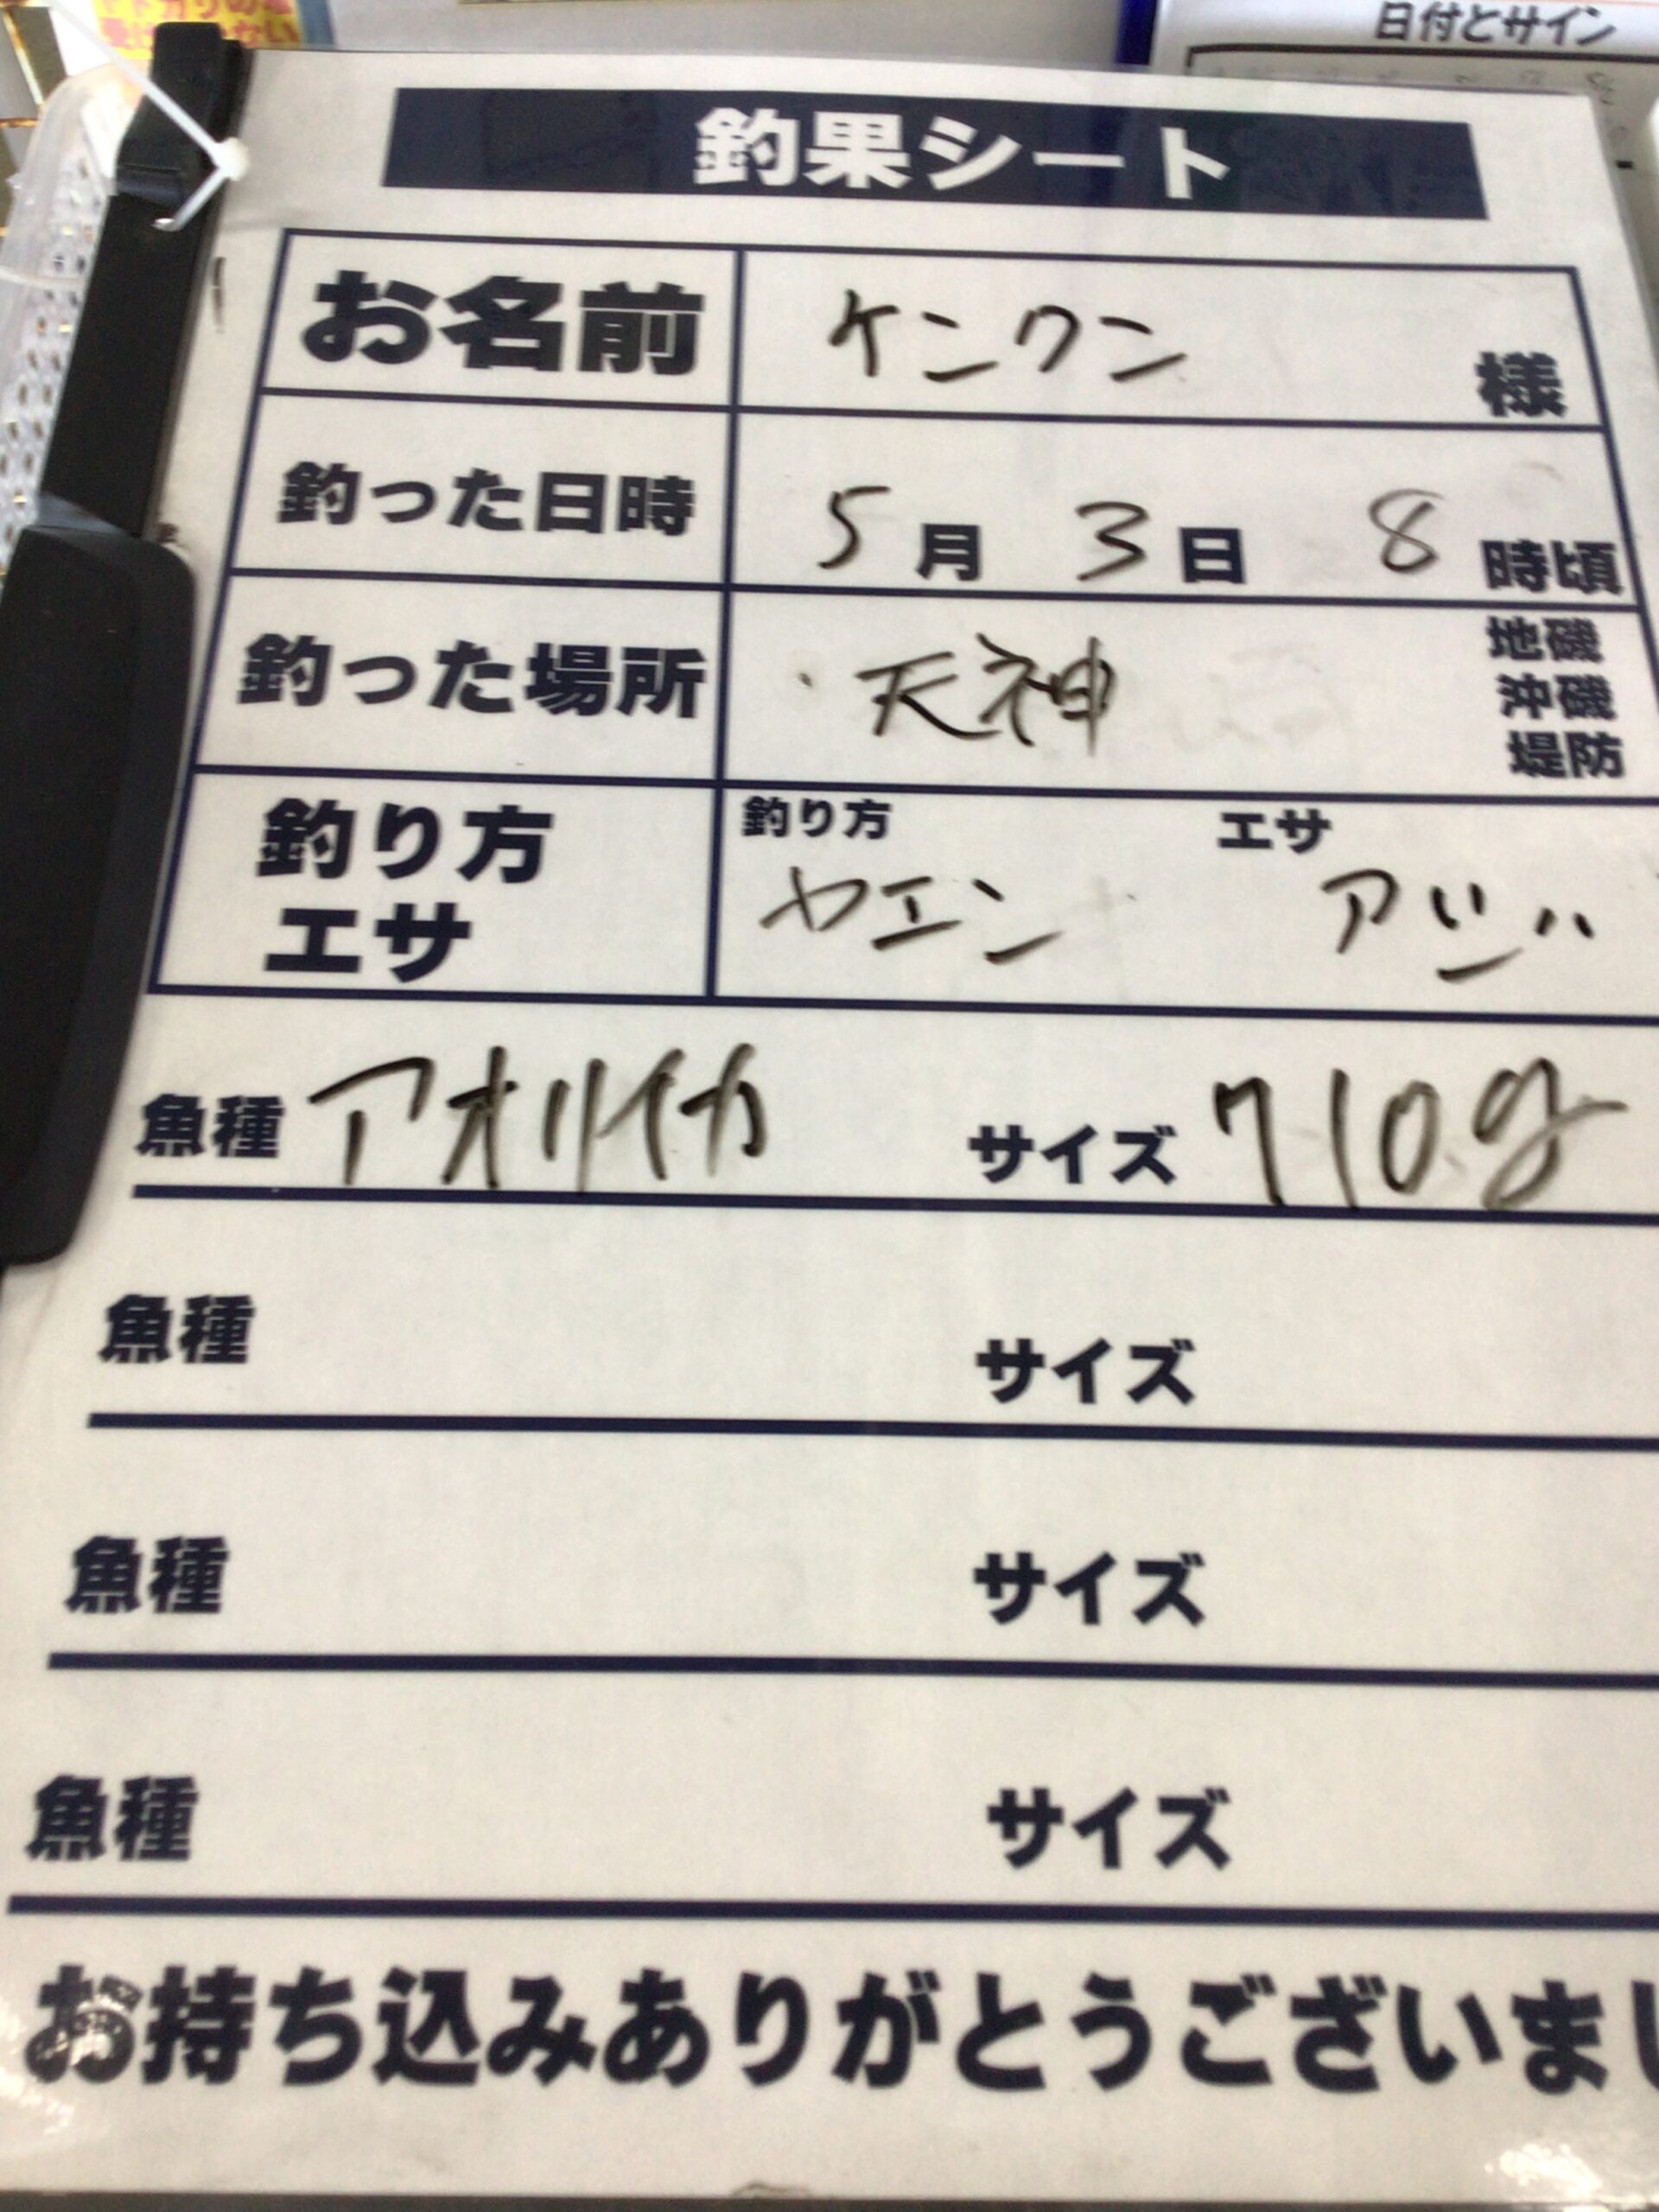 日付とサイン
釣果シート
お名前 ケンクン 様
釣った日時 5月 3日 8時頃
釣った場所 天神 地磯
沖磯
堤防
釣り方 エサ
釣り方 ヤエン エサ アジ
魚種 アオリイカ サイズ 710g
魚種 サイズ
魚種 サイズ
魚種 サイズ
お持ち込みありがとうございまし